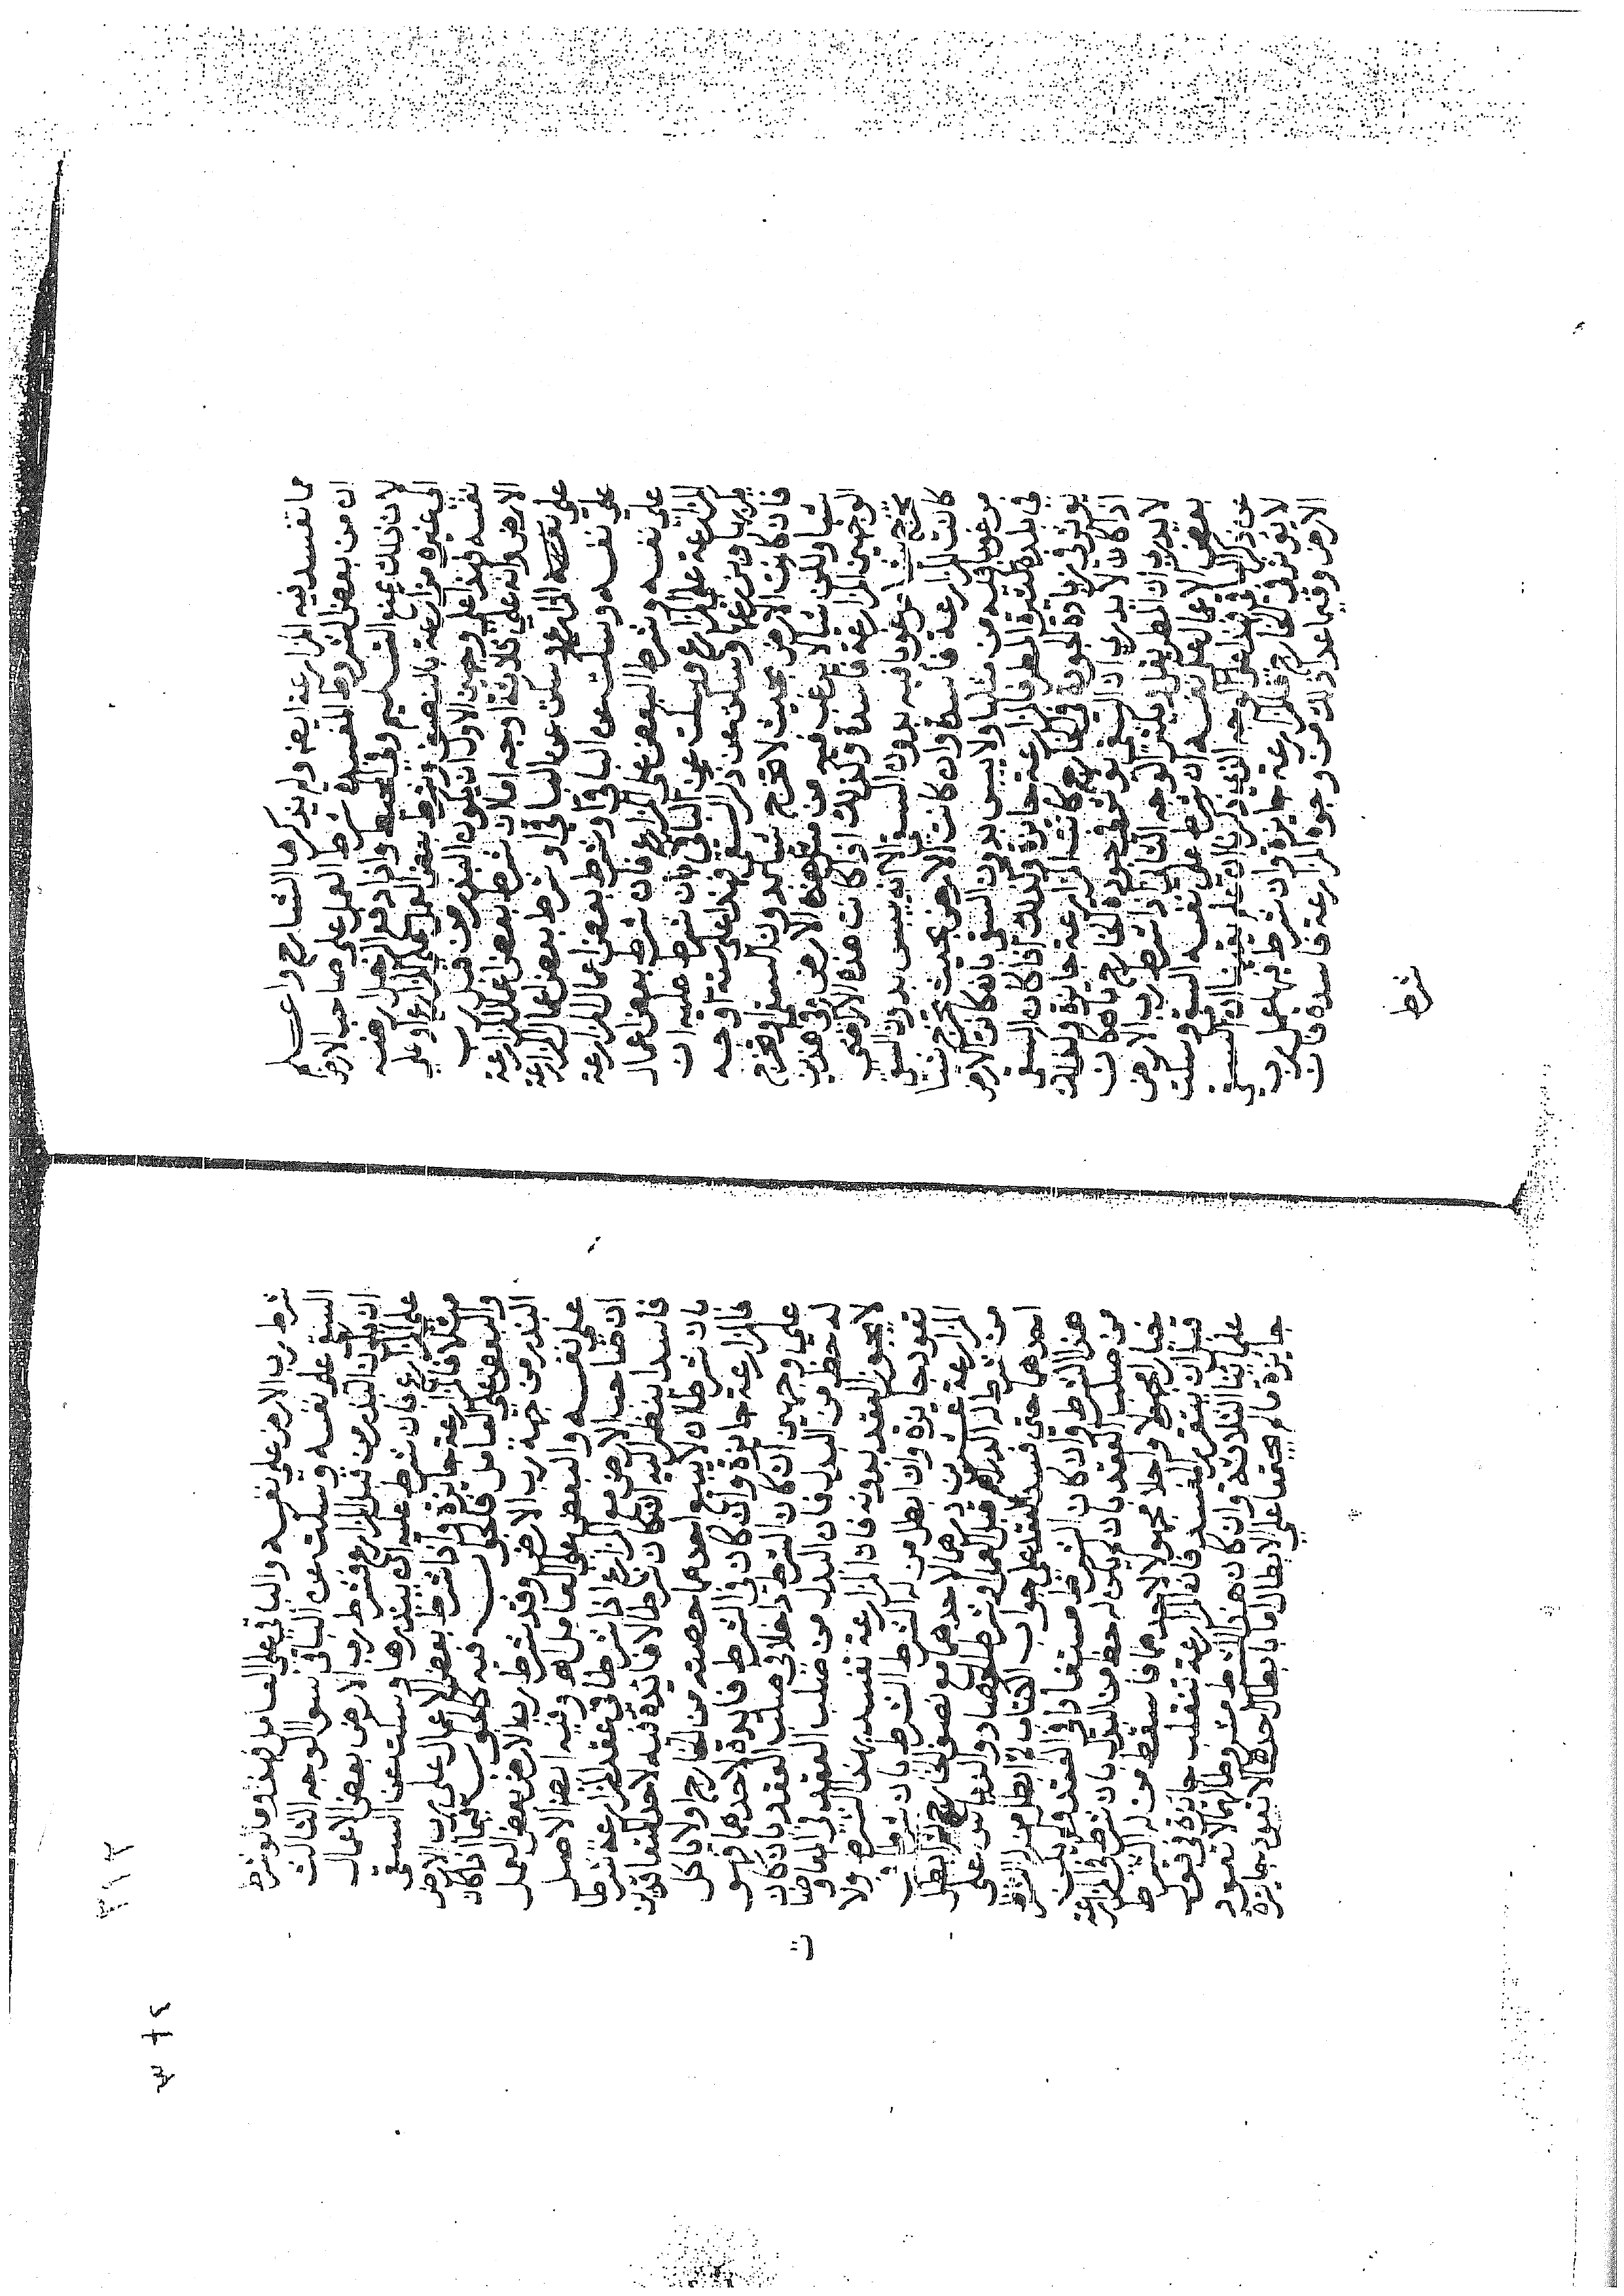 مما تفسد فيه المزارعة ايضا ولم يذكرها الشارح واعلم
ان من بعض الشروط المفسدة شرط العمل على صاحب الارض
لان ذلك يمنع التسليم وفي المحيط واذا دفع الرجل ارضه
الى غيره مزارعة بالنصف وشرط بعض العمل على المزارع او على
نفسه فهذا على وجهين الاول ان يكون البذر من قبل رب
الارض وانه على ثلاثة اوجه اما ان شرط بعض عمل المزارعة
على نفسه وسكت عن الباقي او شرط بعض اعمال المزارعة
على نفسه وسكت عن الباقي او شرط بعض اعمال المزارعة
على نفسه وشرط البعض على المزارع فان شرط بعض اعمال
المزارعة على المزارع وسكت عن الباقي بان شرط عليه ان
يكربها ويزرعها وسكت عن ذكر السقي فهذا على ستة اوجه
فان كانت الارض بحيث لا تخرج شيئا بدون السقي او تخرج
شيئا ولكن شيئا لا يرغب فيه من مثل هذه الارض وفي هذين
الوجهين المزارعة فاسدة وكذلك اذا كانت هذه الاراضي
تخرج شيئا مرغوبا فيه بدون السقي الا انه ييبس بدون السقي
كانت المزارعة فاسدة وان كانت الارض بحيث تخرج شيئا
مرغوبا فيه من مثلها ولا ييبس بدون السقي بان كانت الارض
في بلدة كثيرة المطر فالمزارعة جايزة وكذلك اذا كان السقي
يوثر في زيادة الجودة في الخارج كانت المزارعة جايزة وكذلك
اذا كان لا يدري ان السقي يوثر في جودة الخارج بان كان
لا يدري ان المطر يقل او يكثر الوجه الثاني اذا شرط رب الارض
بعض الاعمال على نفسه ان شرط على نفسه السقي وسكت
عن ذكر الباقي فهذا على الوجه الذي ذكرنا ان علم يقينا ان السقي
لا يوثر في الخارج فالمزارعة جايزة وان شرط فيها عمل رب
الارض وفيما عدا ذلك من وجوه المزارعة فاسدة فان
شرط
شرط رب الارض على نفسه والباقي على العامل فهذا وما لو شرط
السقي على نفسه وسكت عن الباقي سوا الوجه الثالث
ان يكون البذر من قبل المزارع فشرط رب الارض بعض الاعمال
على المزارع بان شرط عليه ان يبذرها وسكت عن السقي
مثلا فالمزارعة جايزة واذا شرط بعض الاعمال على رب الارض
والبعض على العامل فالجواب فيه كالجواب فيما اذا كان
البذر من جهة رب الارض وقد شرط رب الارض بعض العمل
على نفسه والبعض على العامل اه وفيه ايضا الاصل
ان صاحب الارض مع المزارع اذا شرطا في عقد المزارعة شرطا
فاسدا ينظر اليه ان كان شرطا لا فايدة فيه لاحد المتعاقدين
بان شرطا ان لا يبيع احدهما حصته من الخارج او لا ياكل
فالمزارعة جايزة وان كان في الشرط فايدة لاحدهما فهو
على وجهين ان كان الشرط دخلا في صلب العقد بان كان
له حظ من البدل فان البدل من صلب العقد في المعاوضات
لا يجوز العقد بدونه فان المزارعة تفسد بهذا الشرط ولا
تعود جايزة وان ابطل من له الشرط الشرط بان شرطا في
المزارعة عشرين درهما لاحدهما مع نصف الخارج ثم ابطل
من شرط له الدراهم قبل العمل وشرط الحصاد والدياس على
احدهما حتى فسد العقد على جواب الكتاب ثم ابطل من له الشرط
هذا الشرط وان كان الشرط مستفادا في العقد ولم يكن
من صلب العقد بان لم يكن له حظ من البدل بان شرط في المزارعة
خيار مجهولا واجلا مجهولا لاحدهما فاسقط من له الشرط
قبل ان يتقرر المفسد فان المزارعة تنقلب جايزة في قول
علماينا الثلاثة وان كان هذا الشرط مشروطا لهما لا تعود
جايزة ما لم يجتمعا على الابطال اما بابطال احدهما لا تعود جايزة